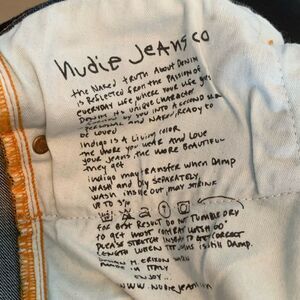 Nudie Jeans co
the Naked truth About Denim
is Reflected from the Passion of
everyday life where your life gets
Denim it's unique character
by you into a second skin
personal and Naked, Ready to
be loved
Indigo is A Living color
the more you wear and love
your jeans, the more beautiful
they get
Indigo may transfer when Damp
Wash and Dry separately,
Wash inside out may shrink
up to 3%
For Best Result Do Not Tumble dry
to get most
Please stretch to get correct
length when is still Damp.
Made in Italy
enjoy...
www.nudiejeans.com